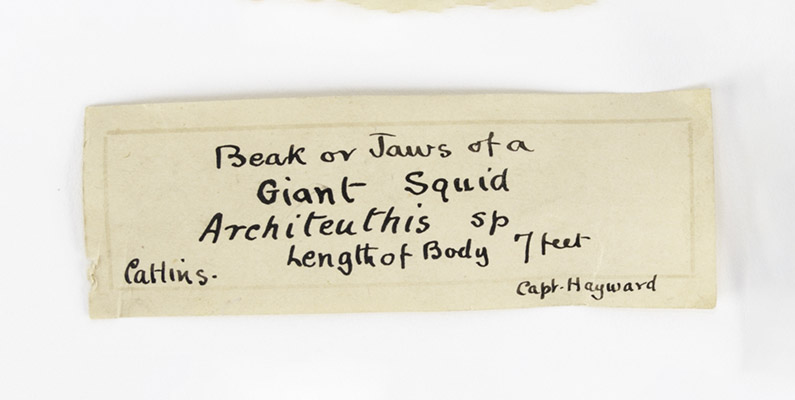 Beak or Jaws of a
Giant Squid
Architeuthis sp
Length of Body 7 feet
Catlins.
Capt. Hayward